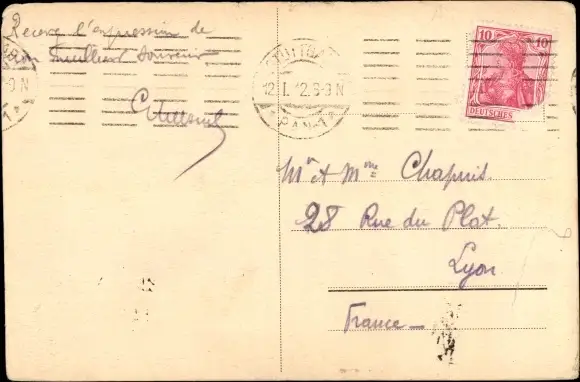 Recevez l'expression de
mon meilleur souvenir
STUTTGART
12.1.12.8-9N
10 10
DEUTSCHES
Mr & Mme Chapuis.
28 Rue du Plat.
Lyon
France